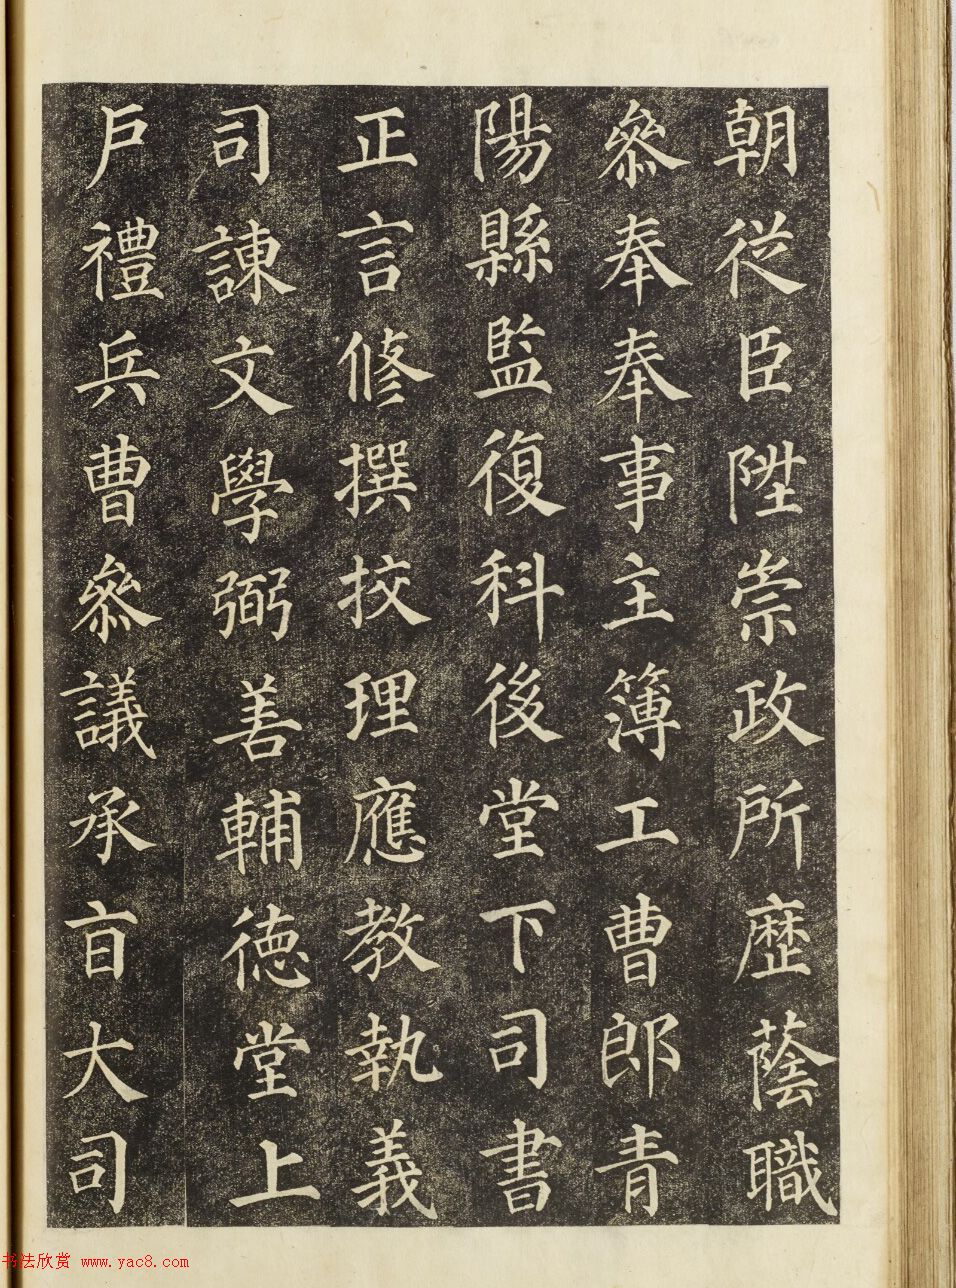 朝従臣陞崇政所歴蔭職
叅奉奉事主簿工曹郎青
陽縣監復科後堂下司書
正言修撰挍理應教執義
司諌文學弼善輔徳堂上
戶禮兵曹叅議承㫖大司
书法欣赏 www.yac8.com